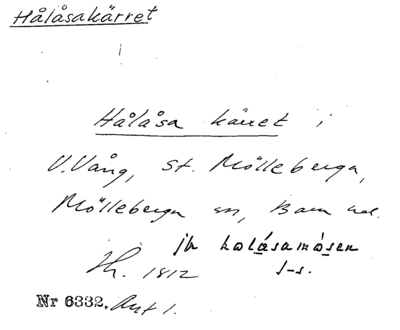 Hålåsakärret
Hålåsa kärret i
V. Vång, St. Mölleberga,
Mölleberga sn, Bara hd.
jfr holåsamåsen
Th. 1812 s-s.
Nr 6332. Avt 1.